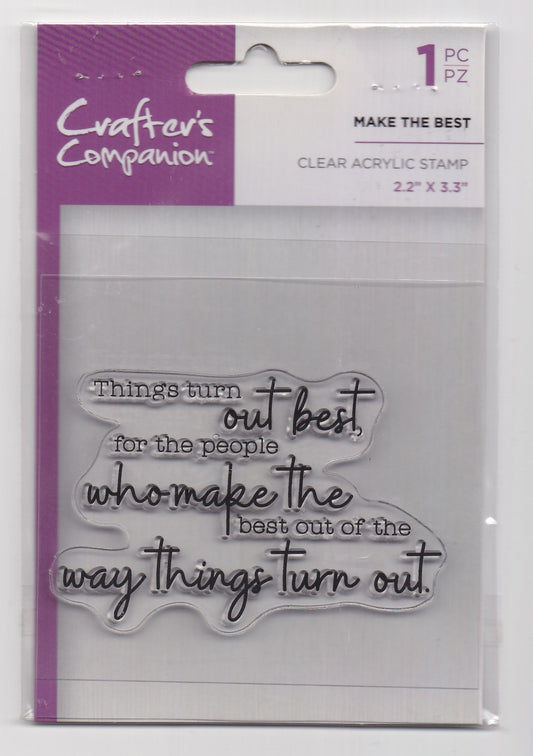 Crafter's
Companion™
1 PC
PZ
MAKE THE BEST
CLEAR ACRYLIC STAMP
2.2" X 3.3"
Things turn
out best,
for the people
who make the
best out of the
way things turn out.